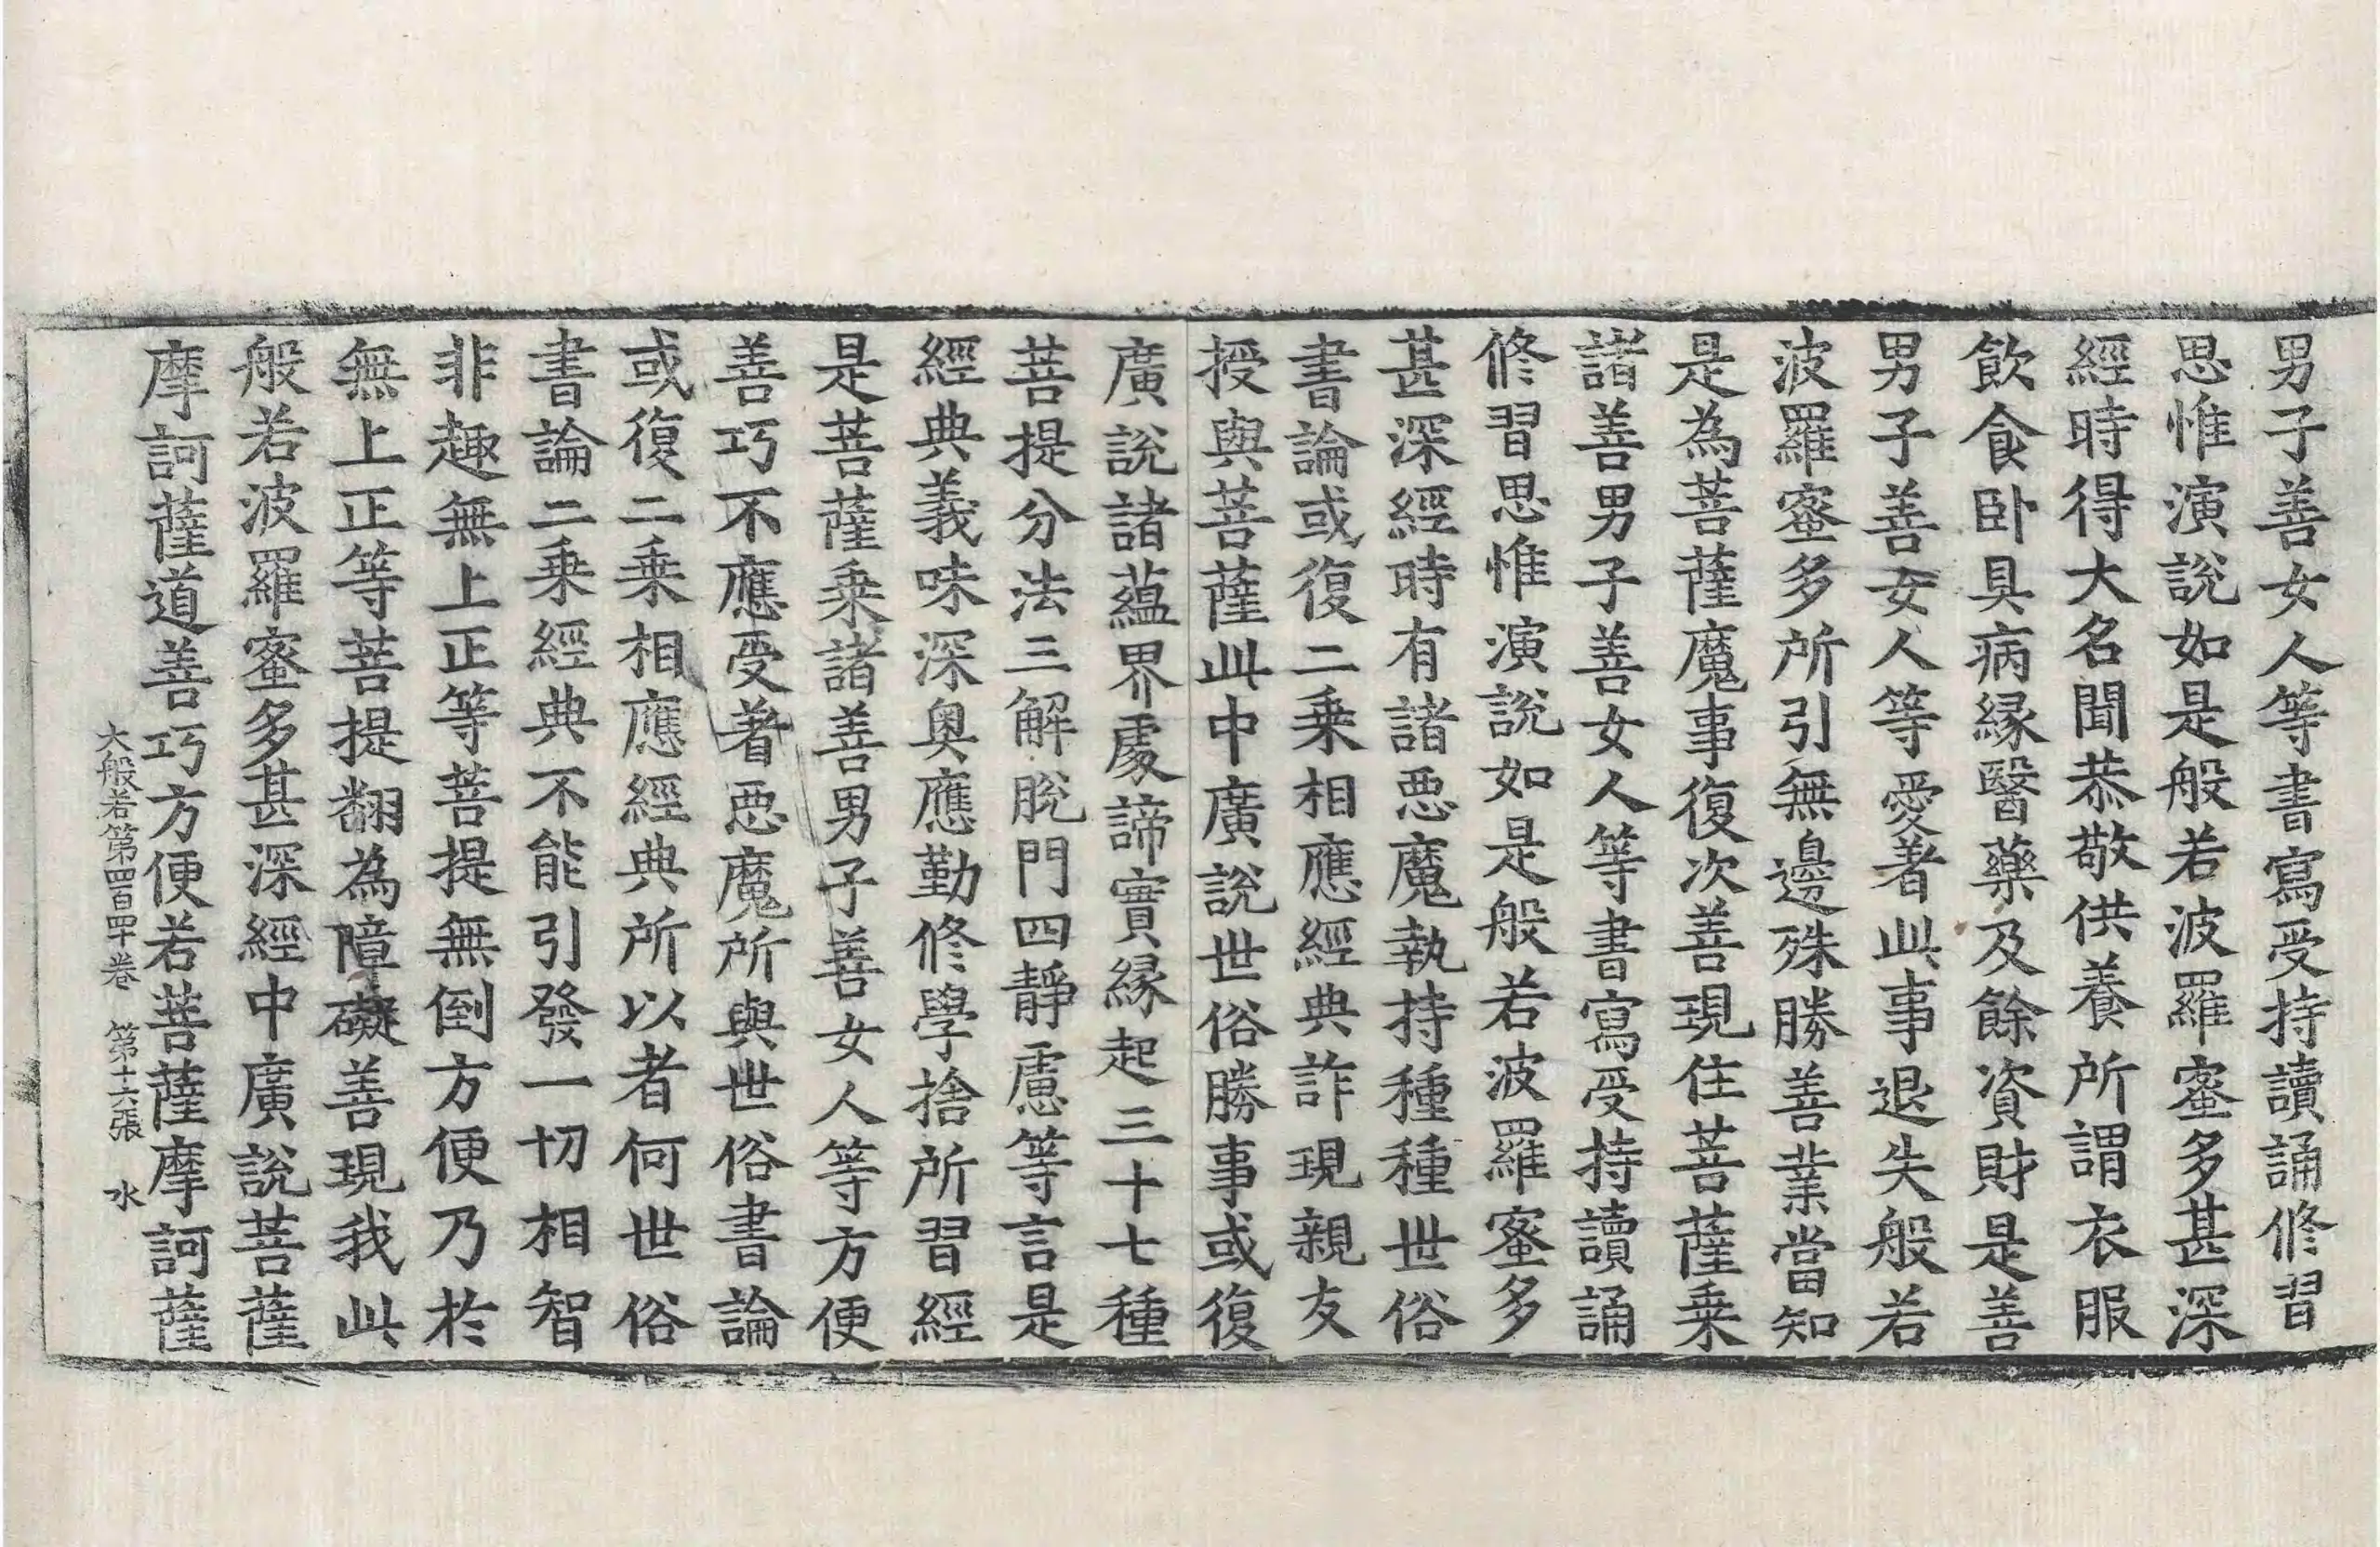 男子善女人等書寫受持讀誦修習
思惟演說如是般若波羅蜜多甚深
經時得大名聞恭敬供養所謂衣服
飲食卧具病縁醫藥及餘資財是善
男子善女人等愛著此事退失般若
波羅蜜多所引無邊殊勝善業當知
是為菩薩魔事復次善現住菩薩乗
諸善男子善女人等書寫受持讀誦
修習思惟演說如是般若波羅蜜多
甚深經時有諸惡魔執持種種世俗
書論或復二乗相應經典詐現親友
授與菩薩此中廣說世俗勝事或復
廣說諸蘊界處諦實縁起三十七種
菩提分法三解脫門四靜慮等言是
經典義味深奥應勤修學捨所習經
是菩薩乗諸善男子善女人等方便
善巧不應受著惡魔所與世俗書論
或復二乗相應經典所以者何世俗
書論二乗經典不能引發一切相智
非趣無上正等菩提無倒方便乃於
無上正等菩提翻為障礙善現我此
般若波羅蜜多甚深經中廣說菩薩
摩訶薩道善巧方便若菩薩摩訶薩
大般若第四百四十卷 第十六張 水